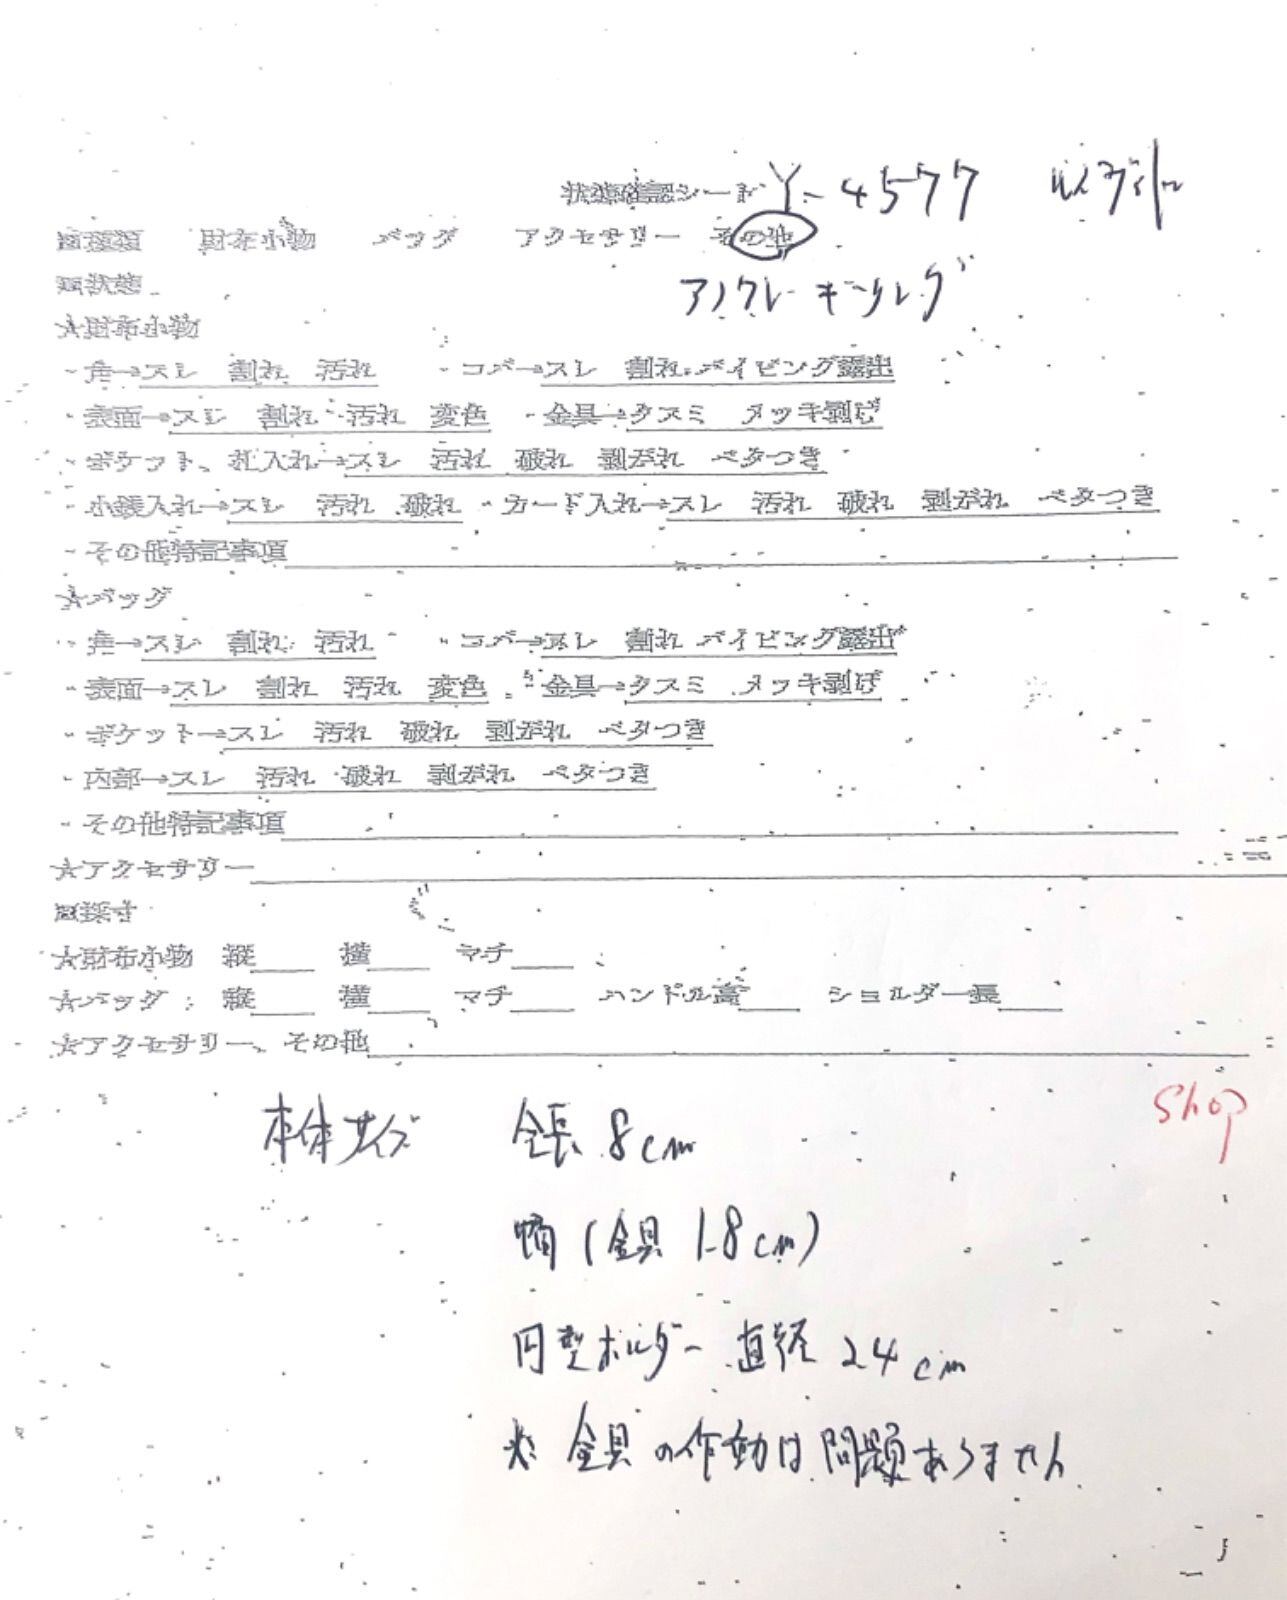 状態確認シート Y-4577 ルイヴィトン
■種類 財布小物 バッグ アクセサリー その他
アンクレ キーリング
■状態
☆財布小物
・角→スレ 割れ 汚れ ・コバ→スレ 割れ パイピング露出
・表面→スレ 割れ 汚れ 変色 ・金具→クスミ メッキ剥げ
・ポケット、札入れ→スレ 汚れ 破れ 剥がれ ベタつき
・小銭入れ→スレ 汚れ 破れ ・カード入れ→スレ 汚れ 破れ 剥がれ ベタつき
・その他特記事項
☆バッグ
・角→スレ 割れ 汚れ ・コバ→スレ 割れ パイピング露出
・表面→スレ 割れ 汚れ 変色 ・金具→クスミ メッキ剥げ
・ポケット→スレ 汚れ 破れ 剥がれ ベタつき
・内部→スレ 汚れ 破れ 剥がれ ベタつき
・その他特記事項
☆アクセサリー
■採寸
☆財布小物 縦 横 マチ
☆バッグ 縦 横 マチ ハンドル高 ショルダー長
☆アクセサリー、その他
shop
本体サイズ 全長 8cm
幅(金具 1.8cm)
円型ホルダー 直径 2.4cm
※ 金具の作動は問題ありません